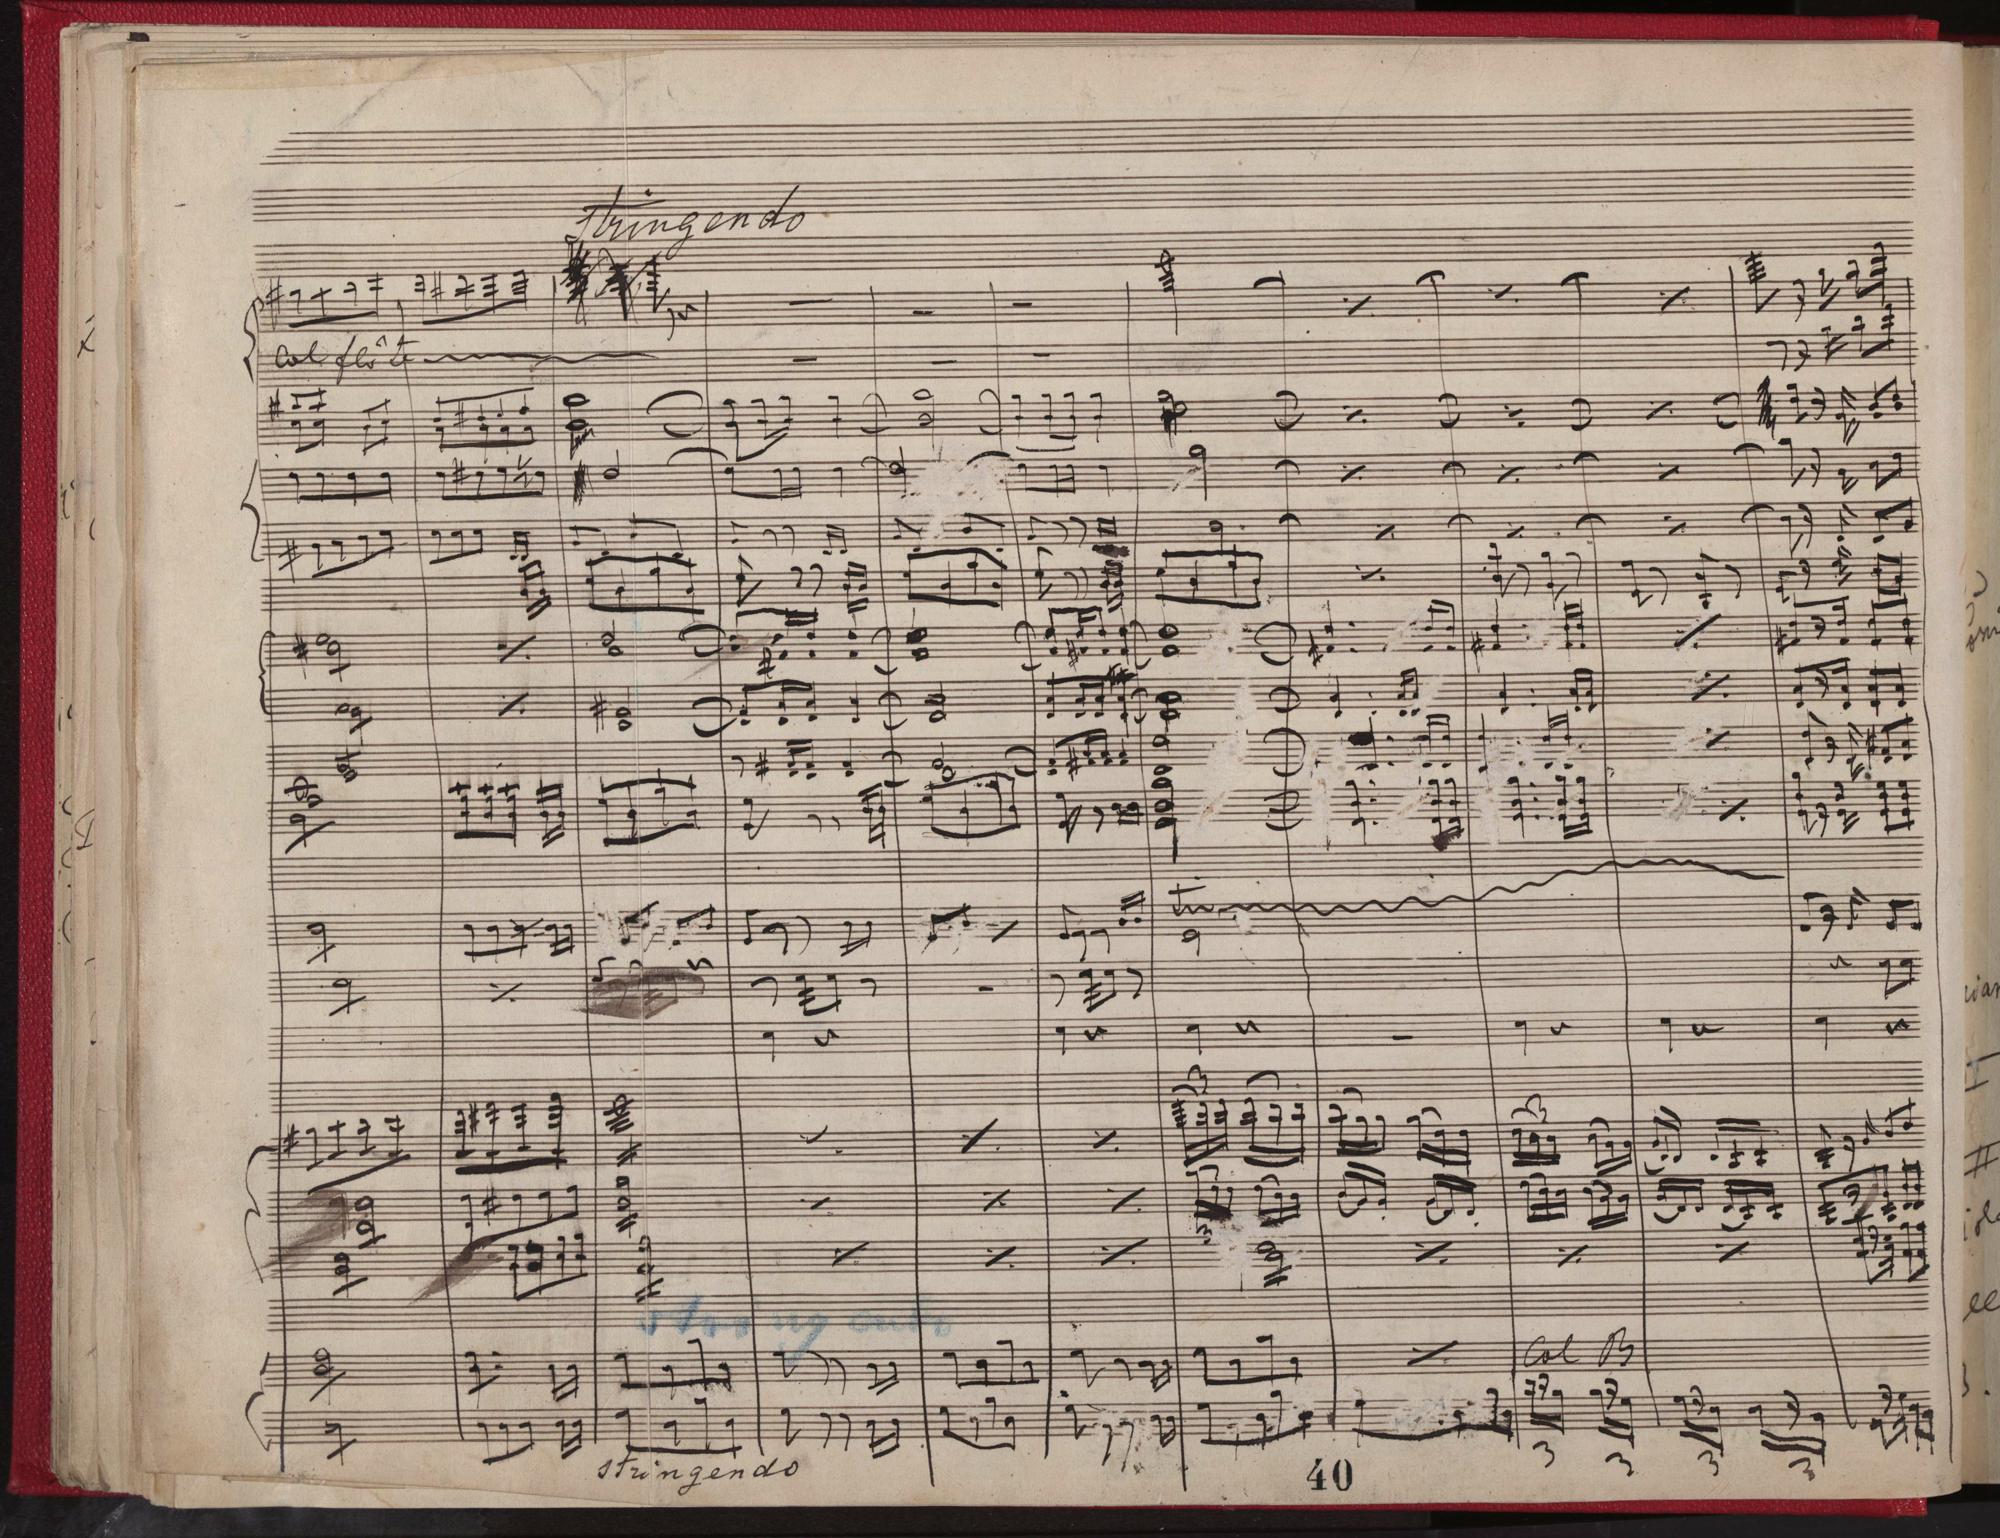 stringendo
col flöte
tr
3
3
3
3
stringendo
Col B
3
3
3
3
stringendo
40